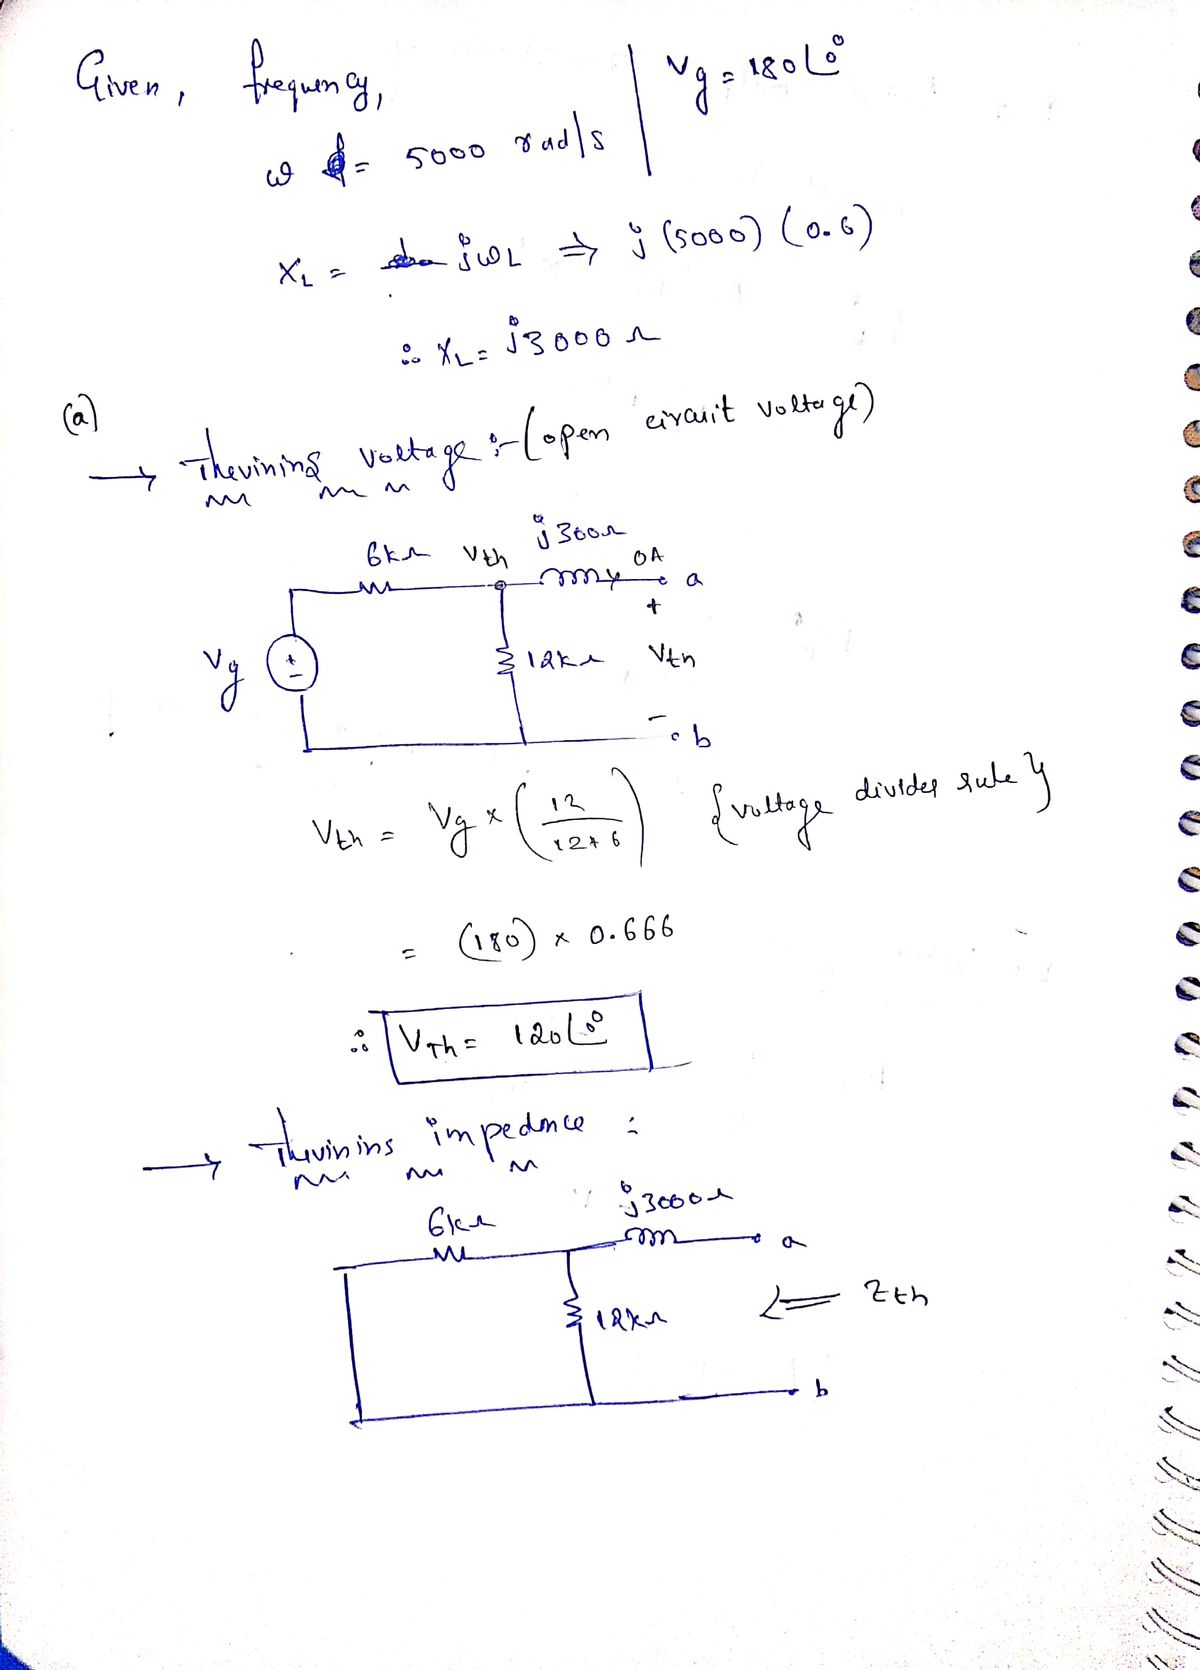 Given, frequency,
Vg = 180∠0°
ω = 5000 rad/s
XL = jωL ⇒ j(5000)(0.6)
∴ XL = j3000Ω
(a)
→ Thevining voltage :- (open circuit voltage)
j300Ω
6kΩ Vth 0A
a
+
Vg + - 12kΩ Vth
-
b
Vth = Vg × (12/12+6) {voltage divider rule}
= (180) × 0.666
∴ VTh = 120∠0°
→ Thevinins impednce :
j3000Ω
6kΩ
a
12kΩ ⇐ Zth
b